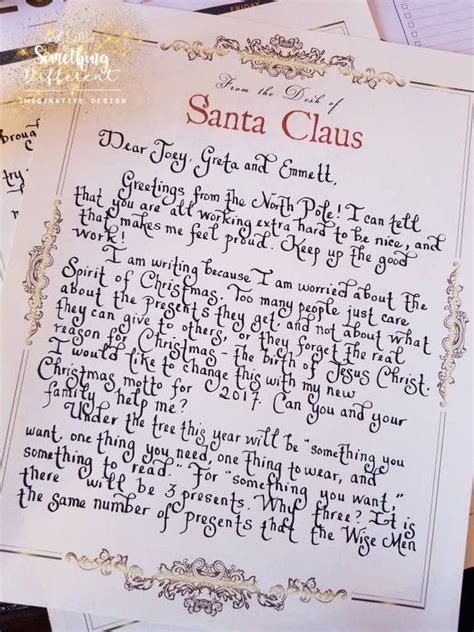 A Little
Something
Different
IMAGINATIVE DESIGN
FRIDAY
From the Desk of
Santa Claus
Dear Joey, Greta and Emmett,
Greetings from the North Pole! I can tell
that you are all working extra hard to be nice, and
that makes me feel proud. Keep up the good
work!
I am writing because I am worried about the
Spirit of Christmas. Too many people just care
about the presents they get, and not about what
they can give to others; or they forget the real
reason for Christmas - the birth of Jesus Christ.
I would like to change this with my new
Christmas motto for 2017. Can you and your
family help me?
Under the tree this year will be "something you
want, one thing you need, one thing to wear, and
something to read." For "something you want,"
there will be 3 presents. Why three? It is
the same number of presents that the Wise Men
try